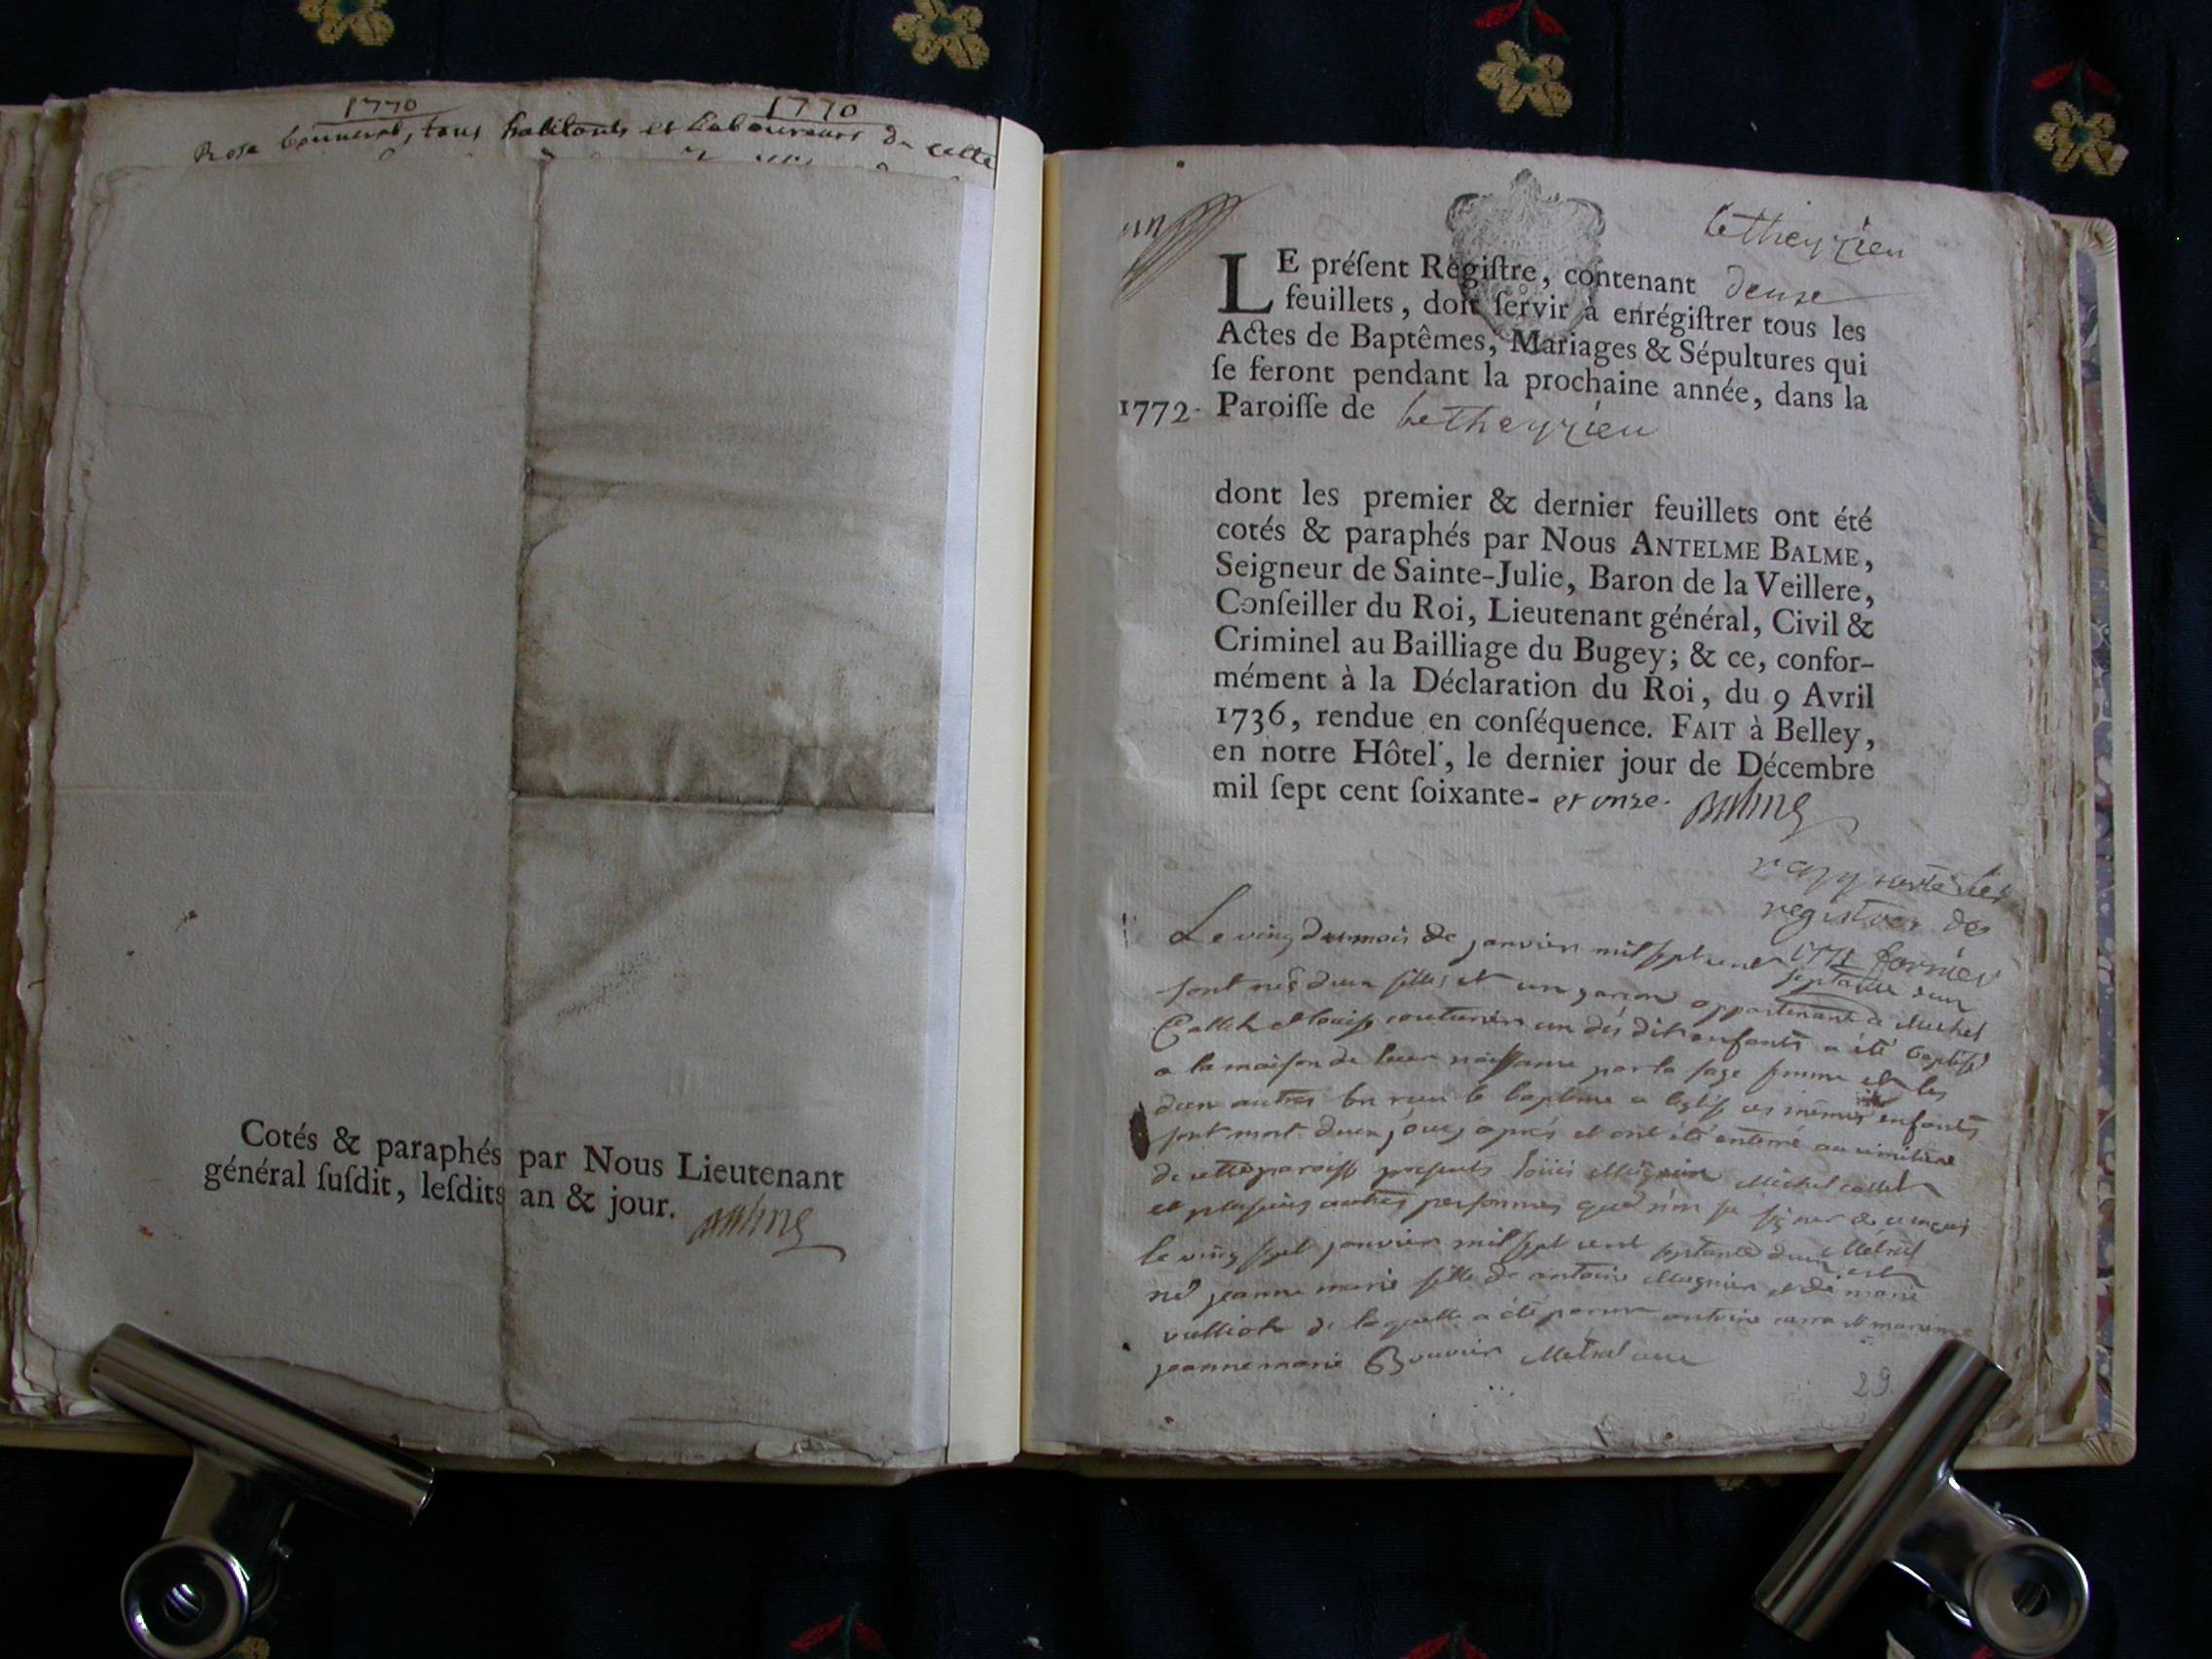 1770 1770
Rose bonnerod, tous habitants et Laboureurs de cette
Cotés & paraphés par Nous Lieutenant
général ſuſdit, leſdits an & jour. Balme
un
betheyzieu
LE préſent Régiſtre, contenant deuze
feuillets, doit ſervir à enrégiſtrer tous les
Actes de Baptêmes, Mariages & Sépultures qui
ſe feront pendant la prochaine année, dans la
1772. Paroiſſe de betheyzieu
dont les premier & dernier feuillets ont été
cotés & paraphés par Nous ANTELME BALME,
Seigneur de Sainte-Julie, Baron de la Veillere,
Conſeiller du Roi, Lieutenant général, Civil &
Criminel au Bailliage du Bugey; & ce, confor-
mément à la Déclaration du Roi, du 9 Avril
1736, rendue en conſéquence. FAIT à Belley,
en notre Hôtel, le dernier jour de Décembre
mil ſept cent ſoixante- et onze. Balme
rapporté les
registres de
1771 fornier
Le ving du mois de janvier mil sept cent septante deux
sont nés deux filles et un garcon appartenant a Michel
Collet et louise couturier un des dit enfants a été baptisé
a la maison de leur naissance par la sage femme et les
deux autres ont recu le baptême a leglise ces mêmes enfants
sont mort deux jours aprés et ont été enterré au cimitiere
de cette paroisse presents loüis Mugnier Michel collet
et plusieurs autres personnes qui n'on su signer de ce enquis
le ving sept janvier mil sept cent septante deux est
né jeanne marie fille de antoine Mugnier et de marie
vulliot de laquelle a été parain antoine cerra et maraine
jeanne marie Bouvier Metral curé
29